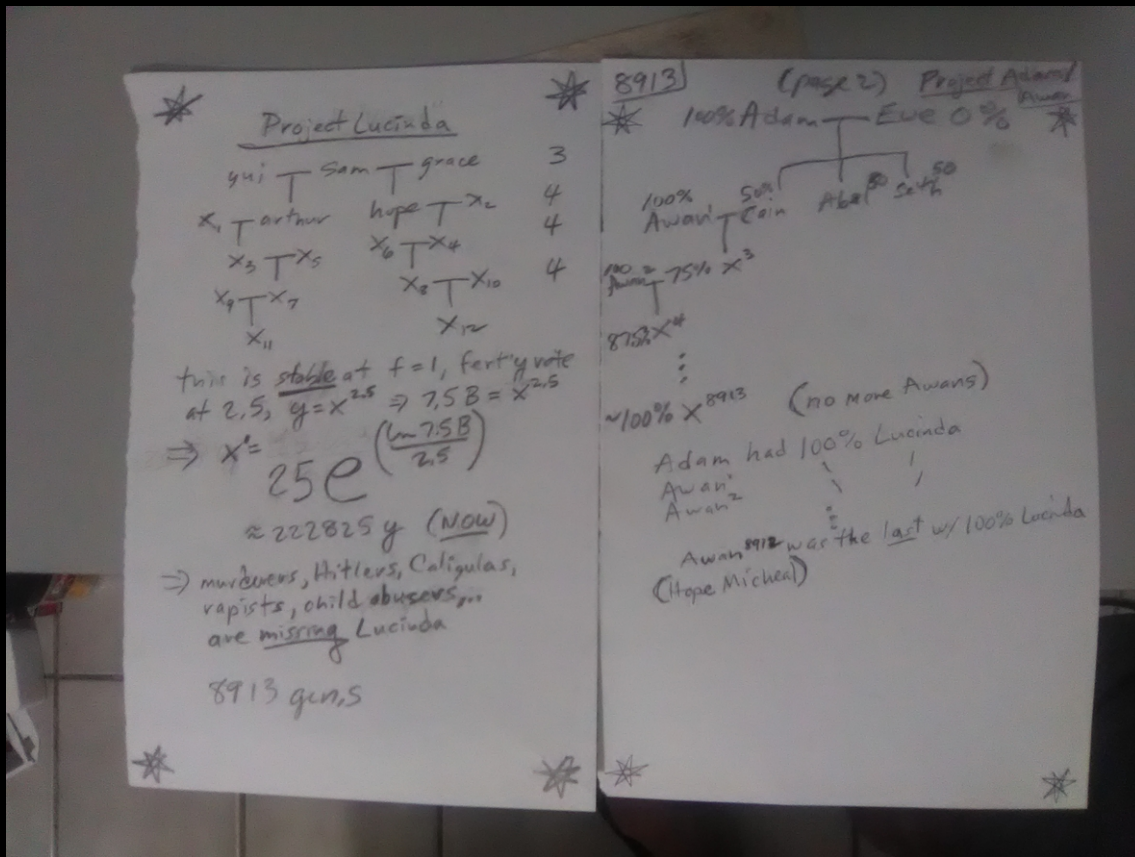 Project Lucinda
yui sam grace 3
x₁ arthur hope x₂ 4
x₃ x₅ x₆ x₄ 4
x₉ x₇ x₈ x₁₀ 4
x₁₁ x₁₂
this is stable at f=1, fert'y rate
at 2,5, y=x^2,5 ⇒ 7,5B = x^2,5
⇒ x'=
25e^(ln 7.5B / 2,5)
≈ 222825 y (NOW)
⇒ murderers, Hitlers, Caligulas,
rapists, child abusers,...
are missing Lucinda
8913 gen,s
8913 (page 2) Project Adam/
Awan
100% Adam Eve 0%
100% 50% 50 50
Awan' Cain Abel Seth
100 Awan² 75% x³
87,5% x⁴
⋮
~100% x^8913 (no more Awans)
Adam had 100% Lucinda
Awan'
Awan²
⋮
Awan^8912 was the last w/ 100% Lucinda
(Hope Micheal)